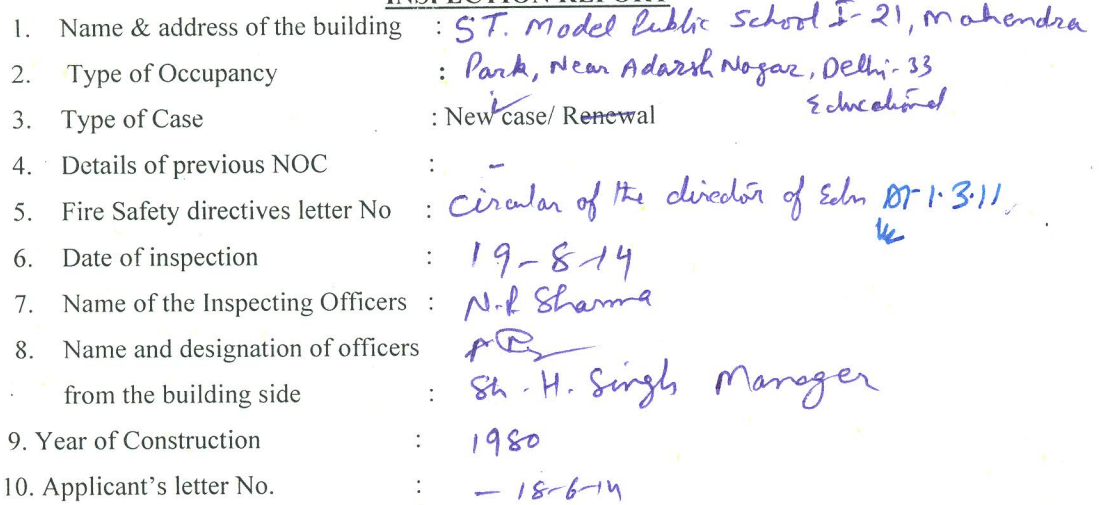 INSPECTION REPORT
1. Name & address of the building : ST. Model Public School I-21, Mahendra
2. Type of Occupancy : Park, Near Adarsh Nagar, Delhi-33
Educational
3. Type of Case : New case/ Renewal
4. Details of previous NOC : -
5. Fire Safety directives letter No : Circular of the director of Edn DT-1.3.11
6. Date of inspection : 19-8-14
7. Name of the Inspecting Officers : Sharma
8. Name and designation of officers
from the building side : Sh. H. Singh Manager
9. Year of Construction : 1980
10. Applicant's letter No. : - 18-6-14